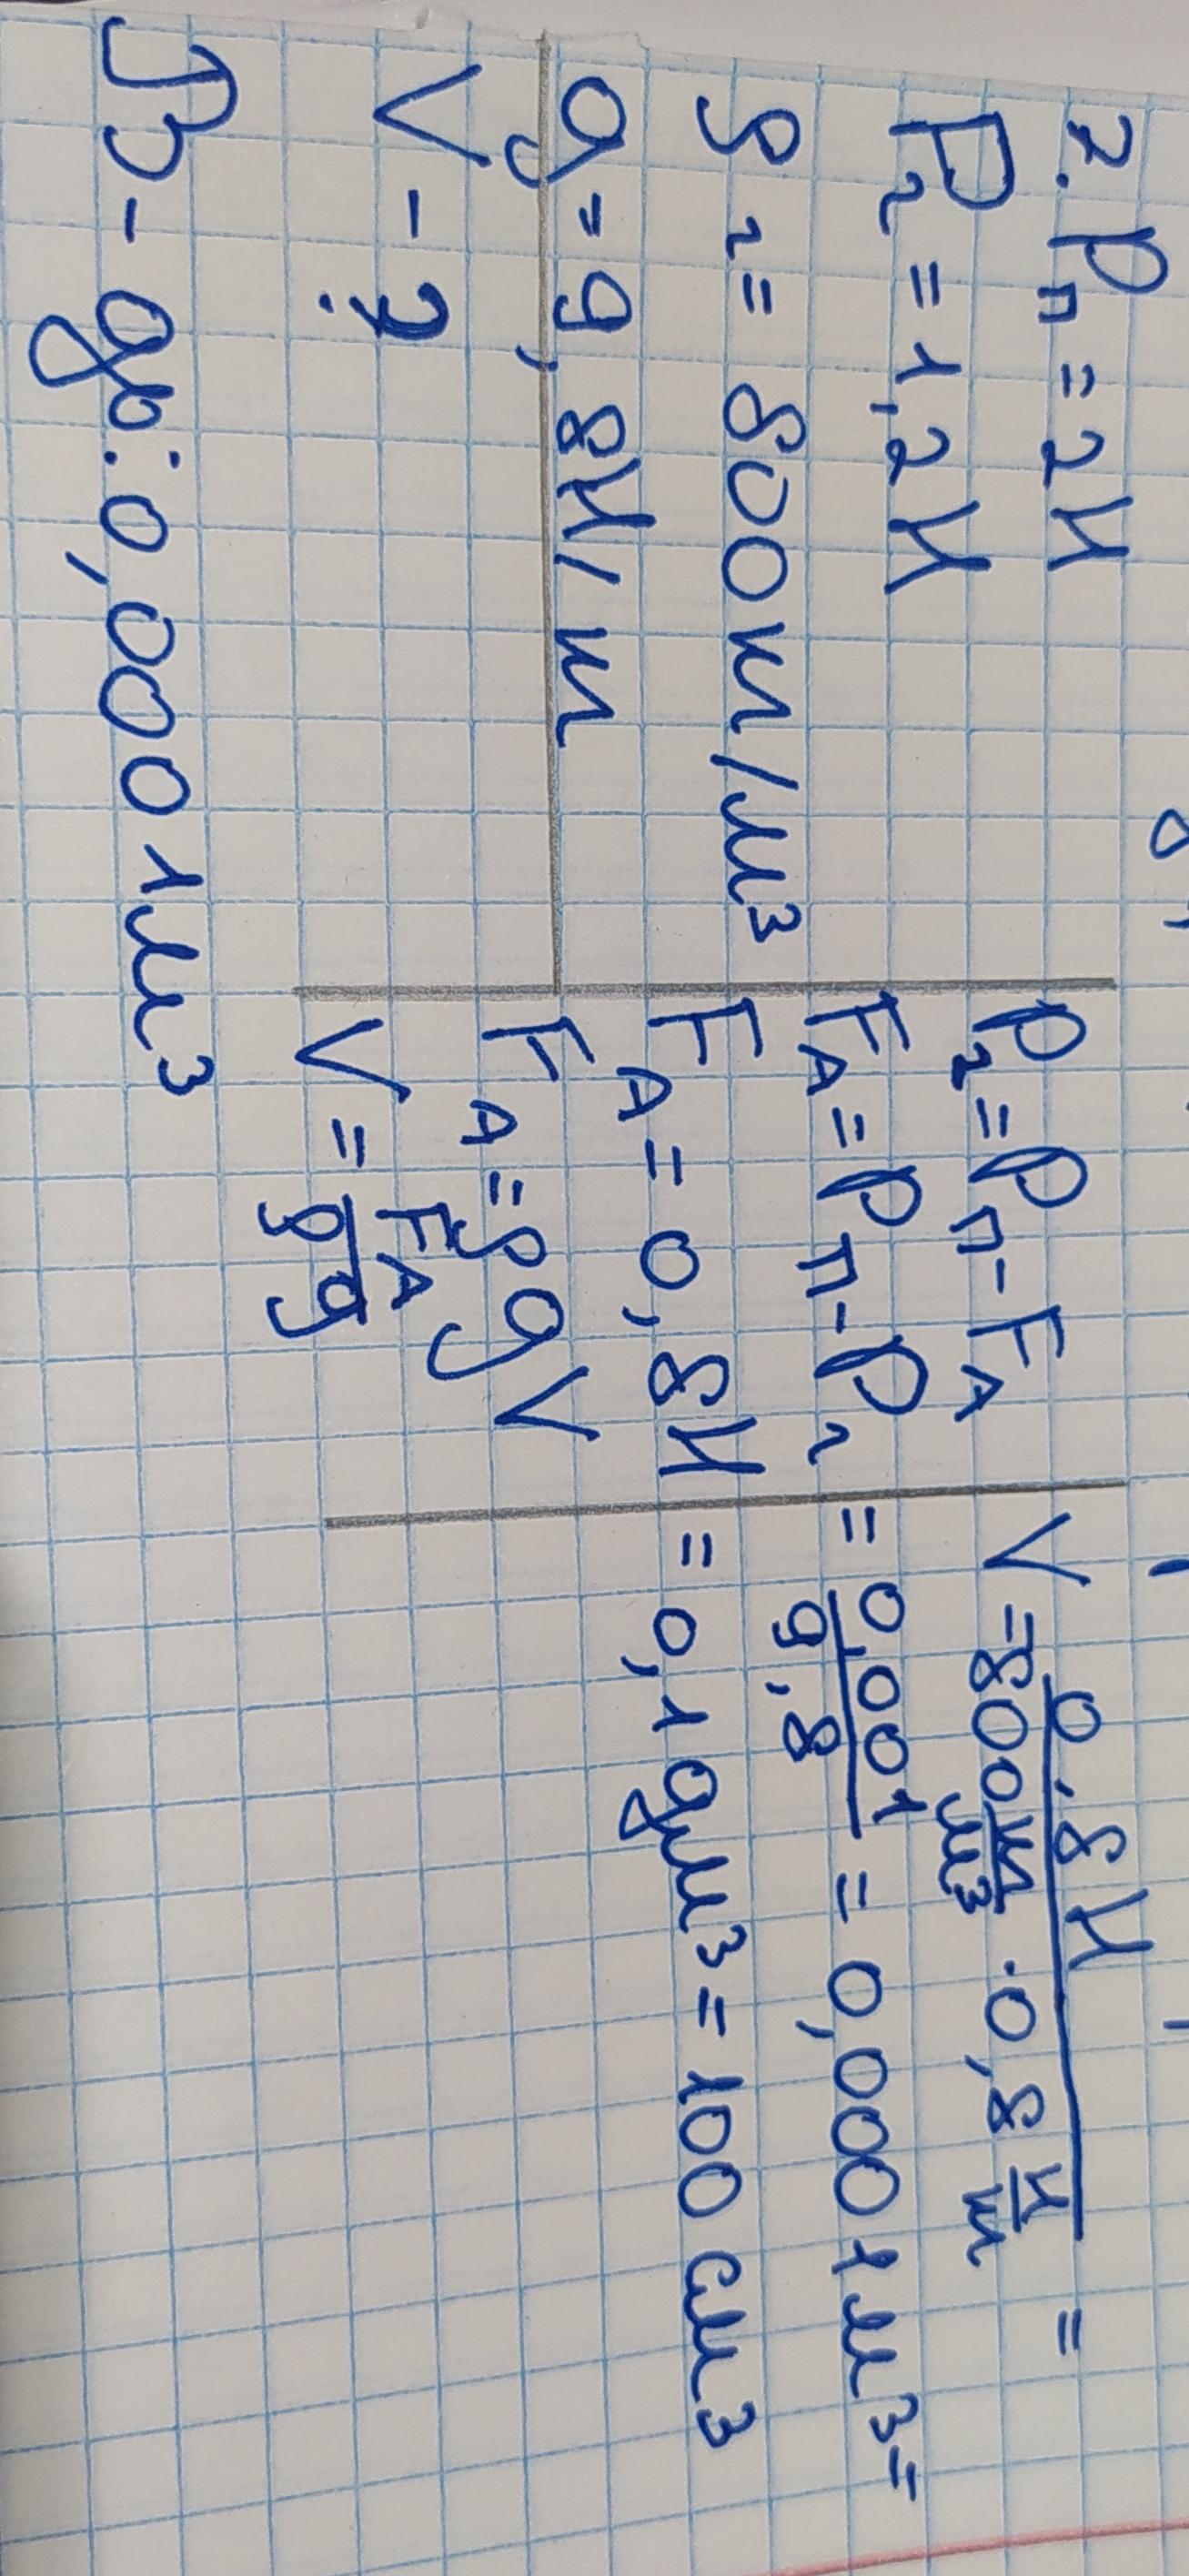 2. Pп = 2Н
Pг = 1,2Н
ρг = 800кг/м³
g = 9,8Н/кг
V - ?
Pг = Pп - FA
FA = Pп - Pг
FA = 0,8Н
FA = ρgV
V = FA/ρg
V = 0,8Н / 800 кг/м³ · 0,8 Н/кг =
= 0,001/9,8 = 0,0001м³ =
= 0,1дм³ = 100см³
В-дь: 0,0001м³